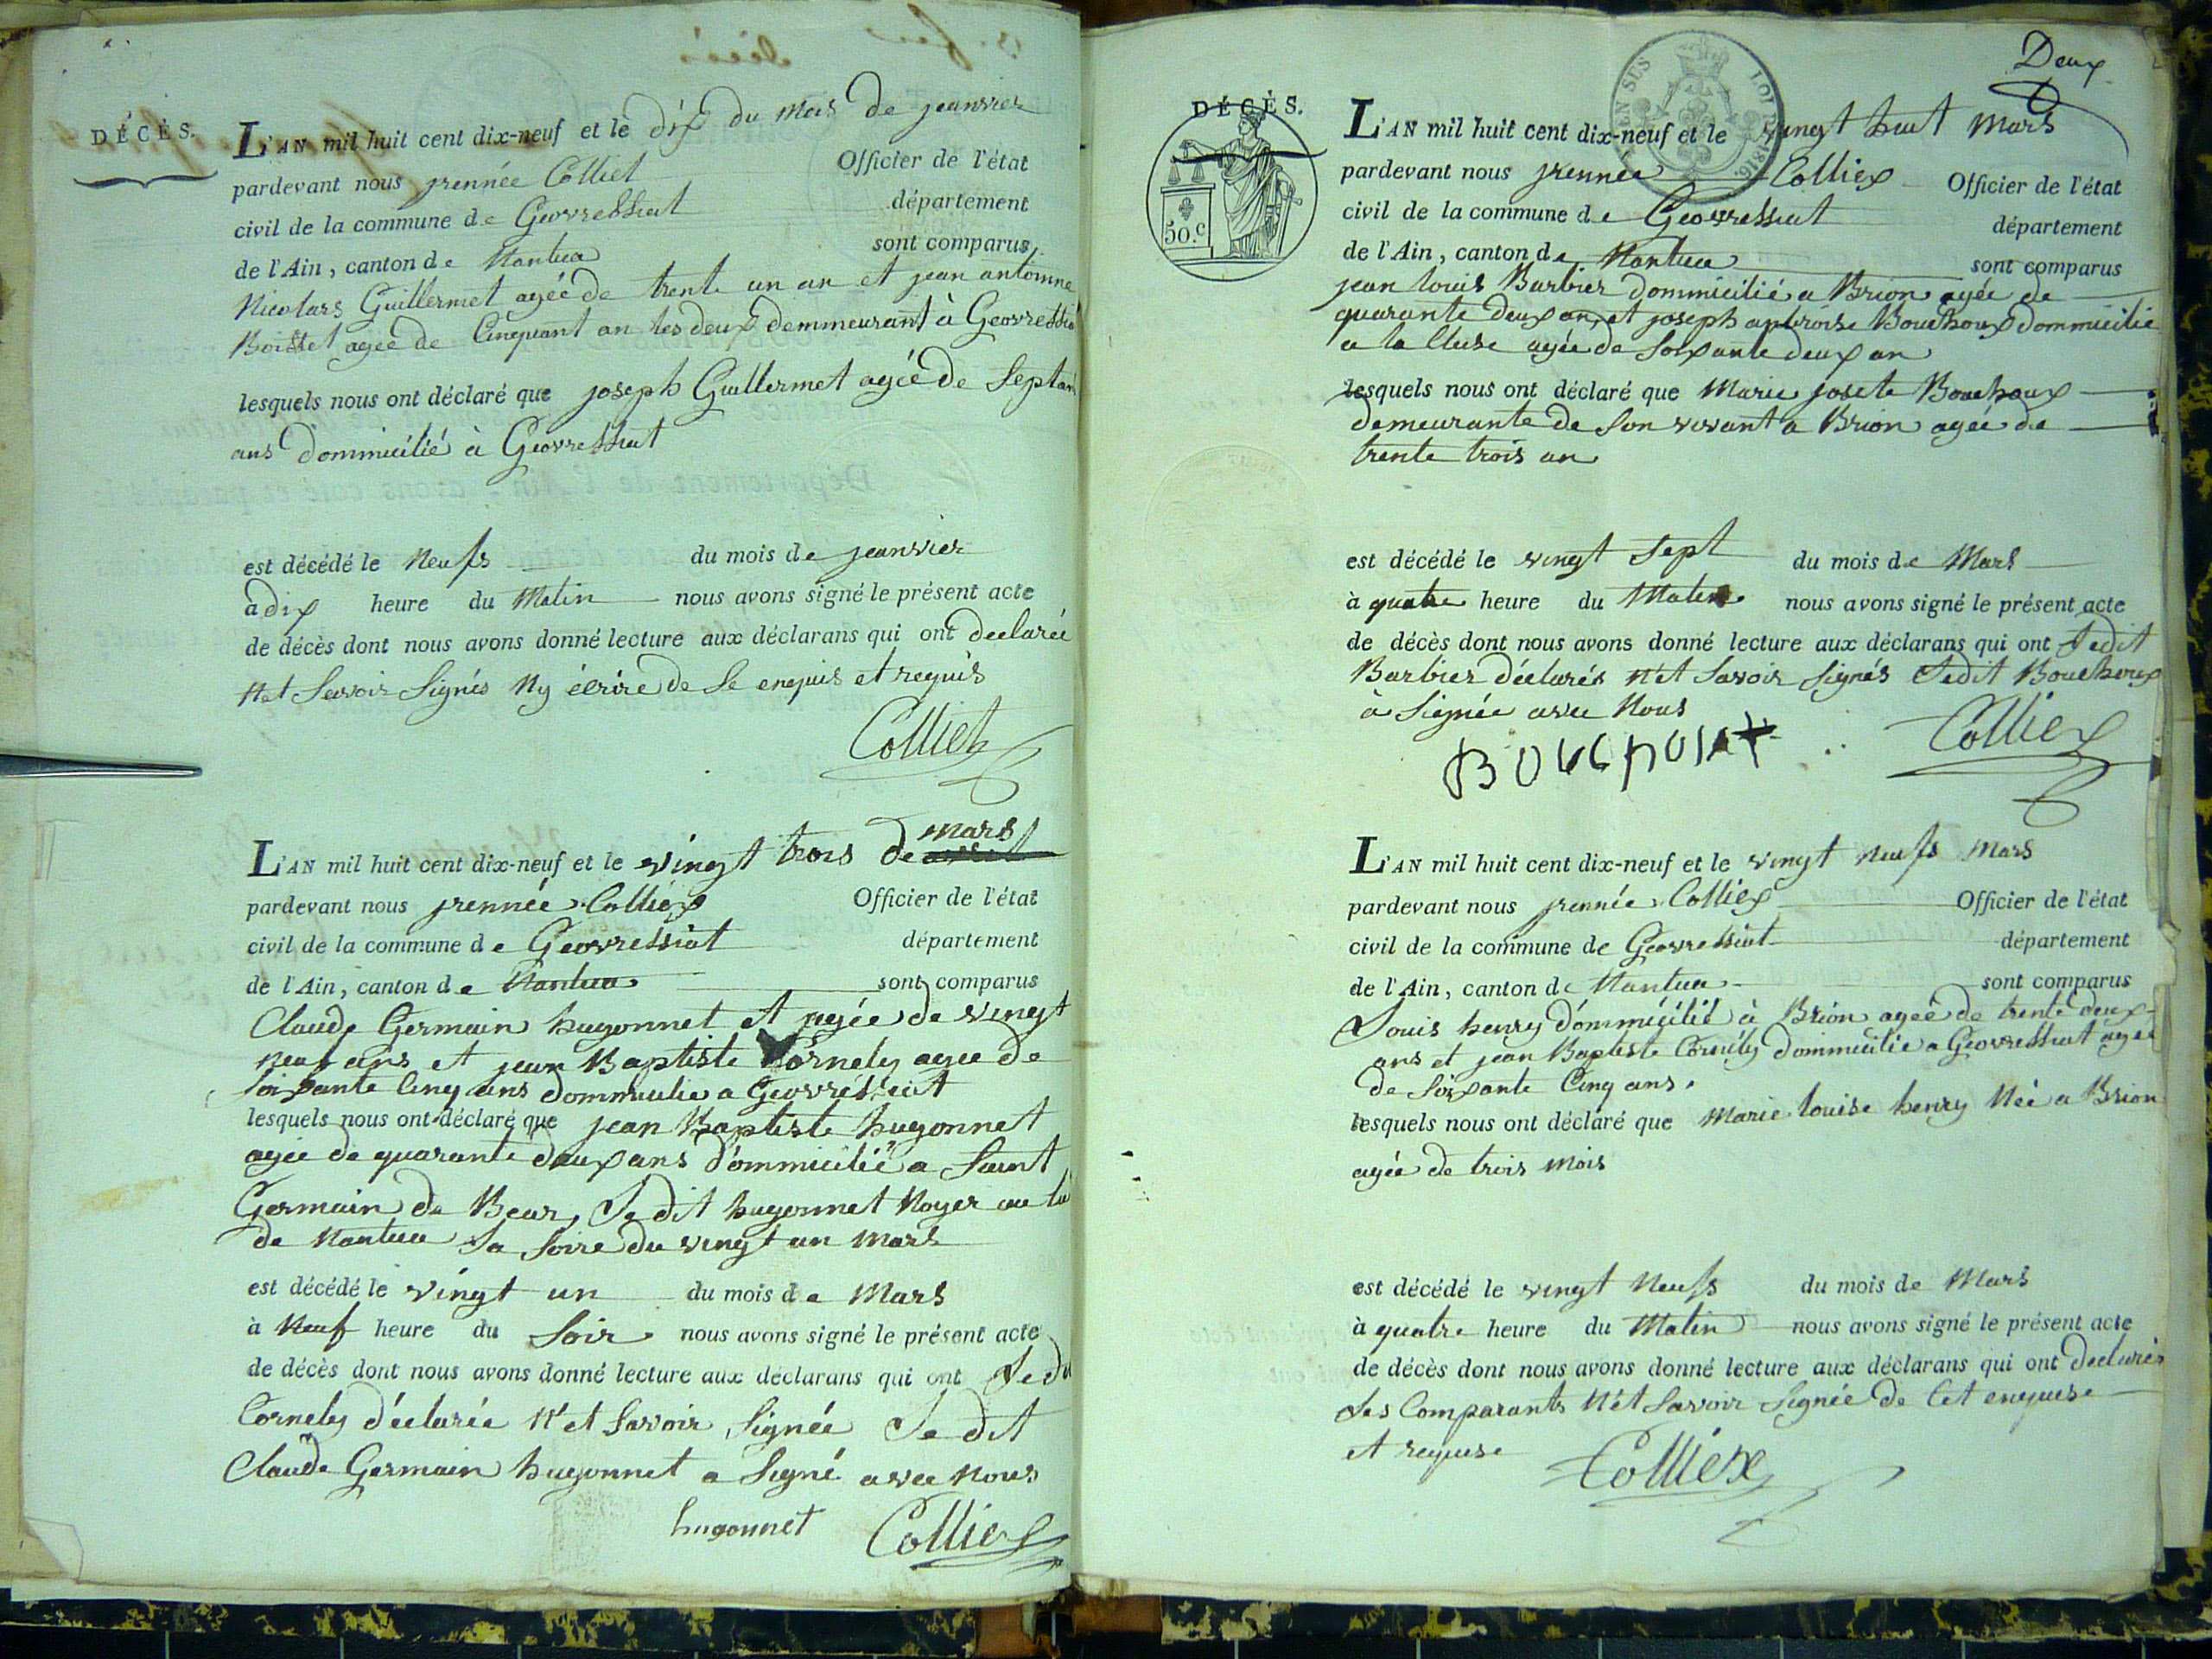 DÉCÈS.
L'AN mil huit cent dix-neuf et le dix du mois de jeanvier
pardevant nous jrennée Colliet Officier de l'état
civil de la commune de Geovressiat département
de l'Ain, canton de Nantua sont comparus
Nicolas Guillermet agéé de trente un an et jean antoinne
Boisset agéé de Cinquant an les deux demmeurant à Geovressia
lesquels nous ont déclaré que joseph Guillermet agéé de Septan
ans dommicilié à Geovressiat
est décédé le Neufs du mois de jeanvier
à dix heure du Matin nous avons signé le présent acte
de décès dont nous avons donné lecture aux déclarans qui ont declarée
Net Savoir Signés Ny écrire de Se enquis et requis
Colliet
L'AN mil huit cent dix-neuf et le vingt trois de mars
pardevant nous jrennée Colliex Officier de l'état
civil de la commune de Geovressiat département
de l'Ain, canton de Nantua sont comparus
Claude Germain hugonnet et agée de vingt
neuf ans et jean Baptiste Cornely agee de
soixante Cinq ans dommicilie a Geovréssiat
lesquels nous ont déclaré que jean Baptiste hugonnet
agée de quarante deux ans dommicilié a Saint
Germain de Bear, Se dit hugonnet Noyer au la
de Nantua La Soire du vingt un Mars
est décédé le vingt un du mois de Mars
à Neuf heure du Soir nous avons signé le présent acte
de décès dont nous avons donné lecture aux déclarans qui ont Se di
Cornely déclarée N'et Savoir Signée Se dit
Claude Germain hugonnet a Signé avec Nous
hugonnet Colliex
Deux
DÉCÈS.
50.c
L'AN mil huit cent dix-neuf et le vingt huit Mars
pardevant nous jrennée Colliex Officier de l'état
civil de la commune de Geovressiat département
de l'Ain, canton de Nantua sont comparus
jean louis Barbier dommicilié a Brion agée de
quarante deux an, et joseph Bouchoux dommicilie
a la Cluse agée de Soixante deux an
lesquels nous ont déclaré que Marie josete Bouchoux
demeurante de Son vivant a Brion agéé de
trente trois an
est décédé le vingt Sept du mois de Mars
à quatre heure du Matin nous avons signé le présent acte
de décès dont nous avons donné lecture aux déclarans qui ont Sedit
Barbier déclarés N'et Savoir Signés Sedit Bouchoux
à Signée avec Nous
BOUCHOUX Colliex
L'AN mil huit cent dix-neuf et le vingt Neufs Mars
pardevant nous jrennée Colliex Officier de l'état
civil de la commune de Geovressiat département
de l'Ain, canton de Nantua sont comparus
Louis henry dommicilié à Brion ageé de trente deux
ans et jean Baptiste Cornély dommicilie a Geovressiat agée
de Soixante Cinq ans.
lesquels nous ont déclaré que Marie louise henry Née a Brion
agée de trois Mois
est décédé le vingt Neufs du mois de Mars
à quatre heure du Matin nous avons signé le présent acte
de décès dont nous avons donné lecture aux déclarans qui ont declarés
Les Comparants N'ét Savoir Signée de Cet enquise
et requise Colliex